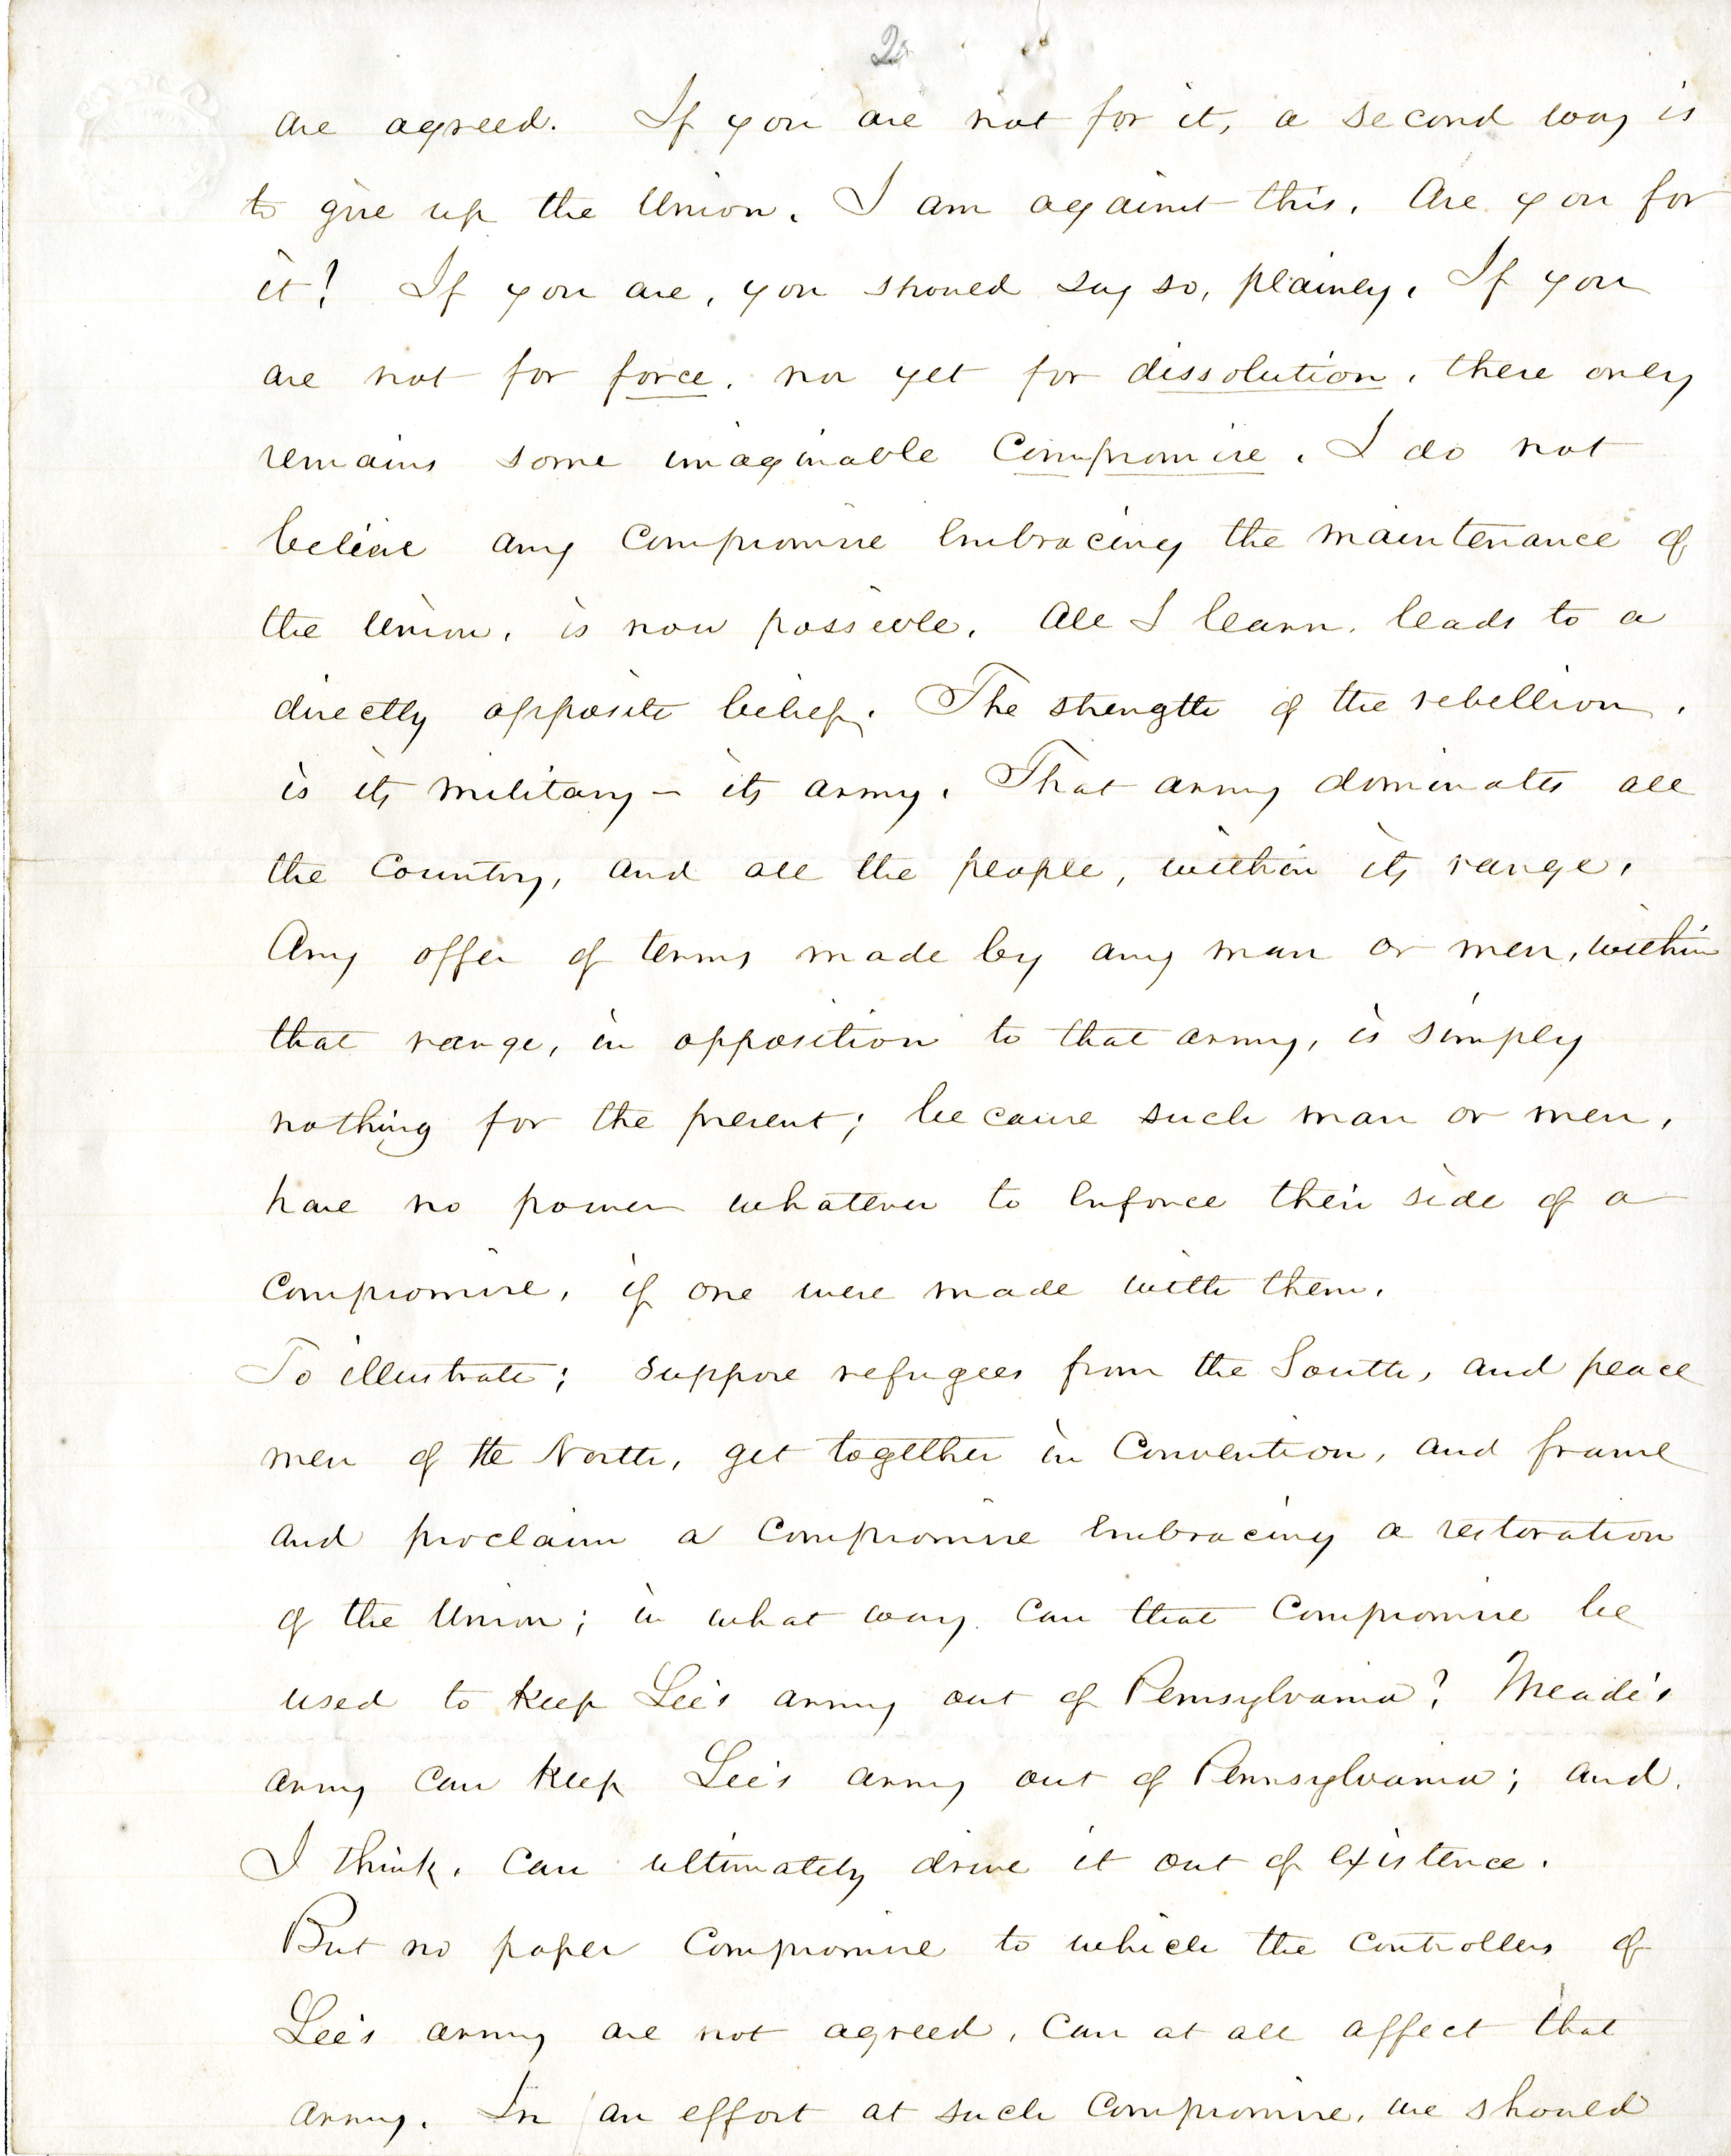 2
are agreed. If you are not for it, a second way is
to give up the Union. I am against this. Are you for
it? If you are, you should say so, plainly. If you
are not for force, nor yet for dissolution, there only
remains some imaginable Compromise. I do not
believe any Compromise embracing the maintenance of
the Union, is now possible. All I learn, leads to a
directly opposite belief. The strength of the rebellion,
is its military — its army. That army dominates all
the Country, and all the people, within its range.
Any offer of terms made by any man or men, within
that range, in opposition to that army, is simply
nothing for the present; because such man or men,
have no power whatever to enforce their side of a
Compromise, if one were made with them.
To illustrate; Suppose refugees from the South, and peace
men of the North, get together in Convention, and frame
and proclaim a Compromise embracing a restoration
of the Union; in what way can that Compromise be
used to keep Lee's army out of Pennsylvania? Meade's
army can keep Lee's army out of Pennsylvania; and,
I think, can ultimately drive it out of existence.
But no paper Compromise to which the Controllers of
Lee's army are not agreed, can at all affect that
army. In an effort at such Compromise, we should